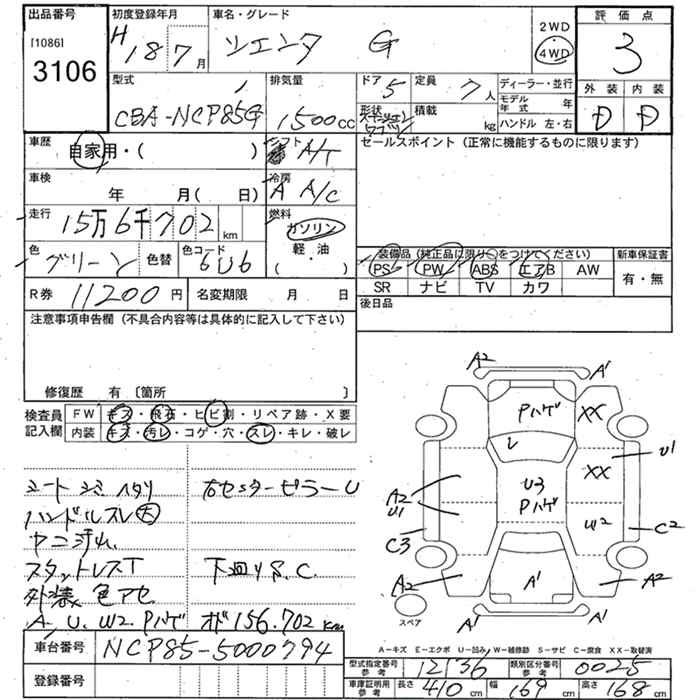 出品番号 初度登録年月 車名・グレード 2WD 評価点
[1086] H 18 7月 シエンタ G 4WD 3
3106
型式 排気量 ドア 5 定員 7人 ディーラー・並行 外装 内装
CBA-NCP85G 1500cc 形状 積載 kg モデル年式 年 D D
ハンドル 左・右
車歴 自家用・( ) シフト A/T セールスポイント(正常に機能するものに限ります)
車検 年 月( 日) 冷房 A A/C
走行 15万6千702km 燃料 ガソリン
色 グリーン 色替 色コード 6U6 軽・油 ( ・ )
装備品(純正品に限り○をつけてください) 新車保証書
PS PW ABS エアB AW 有・無
R券 11200円 名変期限 月 日 SR ナビ TV カワ
注意事項申告欄(不具合内容等は具体的に記入して下さい) 後日品
修復歴 有〔箇所 〕
検査員 FW キズ・飛石・ヒビ割・リペア跡・X要
記入欄 内装 キズ・汚レ・コゲ・穴・スレ・キレ・破レ
シートシミ ハタリ 右センターピラーU
ハンドルスレ大
ヤニ汚レ
スタットレスT 下回りS.C.
外装色アセ
A. U. W2. Pハゲ オド156.702km
A2 A'
Pハゲ XX
U1
レ XX
U3
A2 Pハゲ
U1 W2 C2
C3
A2 A' A2
スペア U A'
A-キズ E-エクボ U-凹み W-補修跡 S-サビ C-腐食 XX-取替済
車台番号 NCP85-5000794
型式指定番号 参考 12136 類別区分番号 参考 0025
登録番号 車庫証明用 参考 長さ 410cm 幅 169cm 高さ 168cm